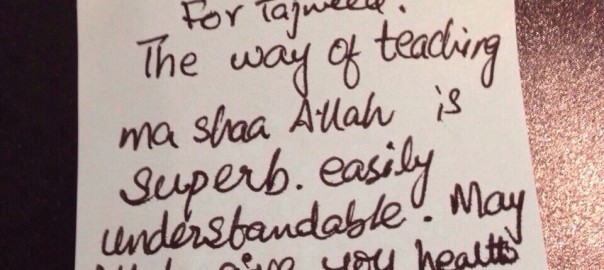 For Tajweed.
The way of teaching
ma shaa Allah is
superb. easily
understandable. May
Allah give you health